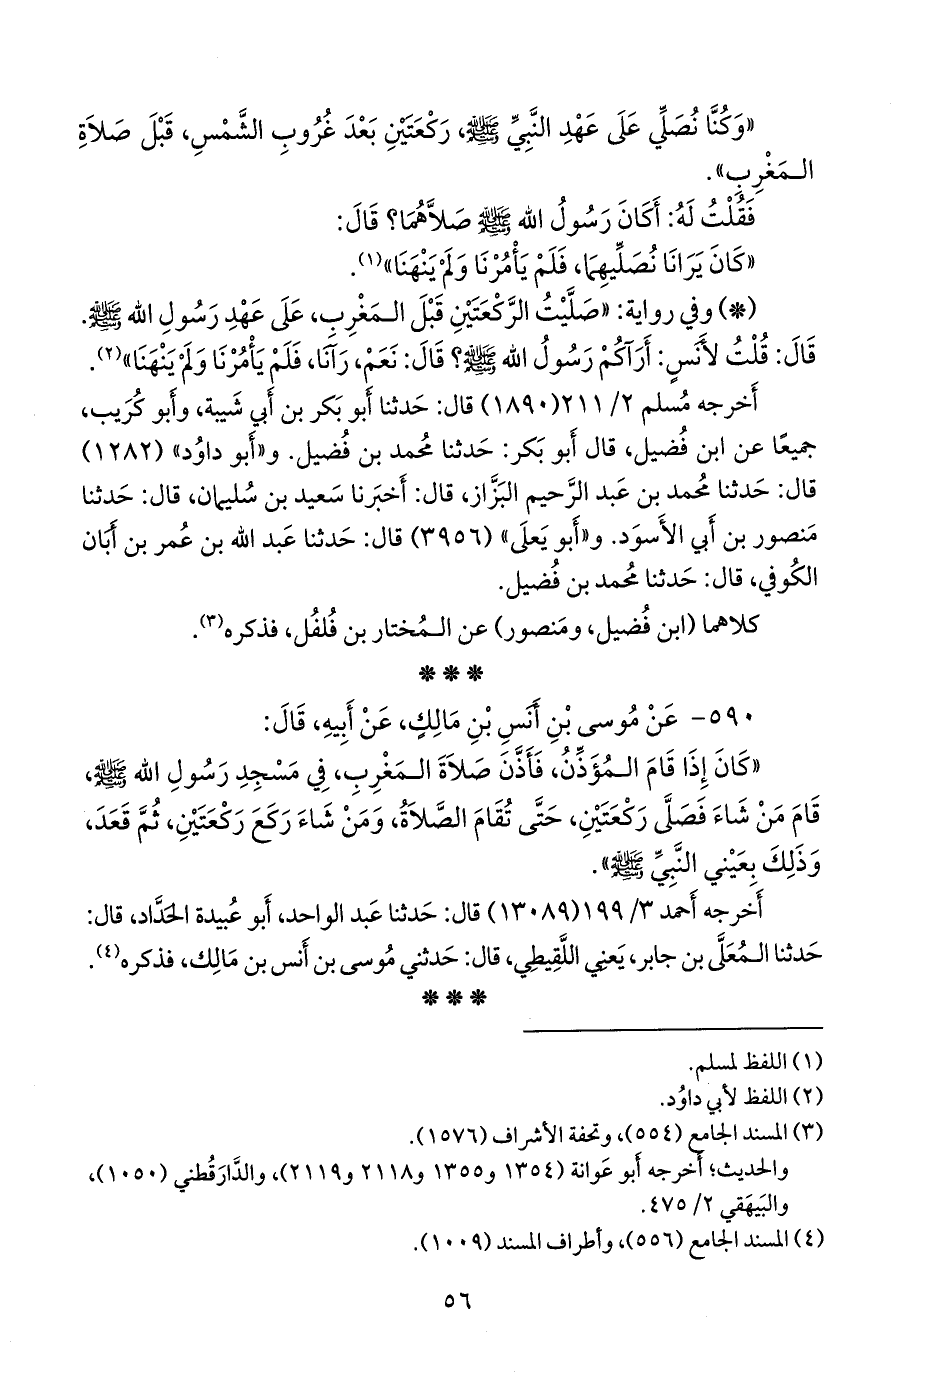 «وَكُنَّا نُصَلِّي عَلَى عَهْدِ النَّبِيِّ ﷺ، رَكْعَتَيْنِ بَعْدَ غُرُوبِ الشَّمْسِ، قَبْلَ صَلاَةِ
الـمَغْرِبِ».
فَقُلْتُ لَهُ: أَكَانَ رَسُولُ الله ﷺ صَلاَّهُمَا؟ قَالَ:
«كَانَ يَرَانَا نُصَلِّيهِمَا، فَلَمْ يَأْمُرْنَا وَلَمْ يَنْهَنَا»(١).
(*) وفي رواية: «صَلَّيْتُ الرَّكْعَتَيْنِ قَبْلَ الـمَغْرِبِ، عَلَى عَهْدِ رَسُولِ الله ﷺ.
قَالَ: قُلْتُ لأَنَسٍ: أَرَآكُمْ رَسُولُ الله ﷺ؟ قَالَ: نَعَمْ، رَآنَا، فَلَمْ يَأْمُرْنَا وَلَمْ يَنْهَنَا»(٢).
أَخرجه مُسلم ٢/ ٢١١(١٨٩٠) قال: حَدثنا أَبو بَكر بن أَبي شَيبة، وأَبو كُرَيب،
جميعًا عن ابن فُضيل، قال أَبو بَكر: حَدثنا مُحمد بن فُضيل. و«أَبو داوُد» (١٢٨٢)
قال: حَدثنا مُحمد بن عَبد الرَّحيم البَزَّاز، قال: أَخبَرنا سَعيد بن سُليمان، قال: حَدثنا
مَنصور بن أَبي الأَسوَد. و«أَبو يَعلَى» (٣٩٥٦) قال: حَدثنا عَبد الله بن عُمر بن أَبَان
الكُوفي، قال: حَدثنا مُحمد بن فُضيل.
كلاهما (ابن فُضيل، ومَنصور) عن الـمُختار بن فُلفُل، فذكره(٣).
***
٥٩٠- عَنْ مُوسى بْنِ أَنَسِ بْنِ مَالِكٍ، عَنْ أَبِيهِ، قَالَ:
«كَانَ إِذَا قَامَ الـمُؤَذِّنُ، فَأَذَّنَ صَلاَةَ الـمَغْرِبِ، فِي مَسْجِدِ رَسُولِ الله ﷺ،
قَامَ مَنْ شَاءَ فَصَلَّى رَكْعَتَيْنِ، حَتَّى تُقَامَ الصَّلاَةُ، وَمَنْ شَاءَ رَكَعَ رَكْعَتَيْنِ، ثُمَّ قَعَدَ،
وَذَلِكَ بِعَيْنيِ النَّبِيِّ ﷺ».
أَخرجه أَحمد ٣/ ١٩٩(١٣٠٨٩) قال: حَدثنا عَبد الواحد، أَبو عُبيدة الحَدَّاد، قال:
حَدثنا الـمُعَلَّى بن جابر، يَعنِي اللَّقِيطِي، قال: حَدثني مُوسى بن أَنس بن مَالِك، فذكره(٤).
***
(١) اللفظ لمسلم.
(٢) اللفظ لأَبي داوُد.
(٣) المسند الجامع (٥٥٤)، وتحفة الأشراف (١٥٧٦).
والحديث؛ أَخرجه أَبو عَوانة (١٣٥٤ و١٣٥٥ و٢١١٨ و٢١١٩)، والدَّارَقُطني (١٠٥٠)،
والبَيهَقي ٢/ ٤٧٥.
(٤) المسند الجامع (٥٥٦)، وأطراف المسند (١٠٠٩).
٥٦